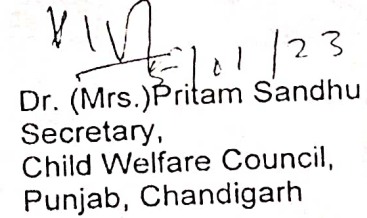 5/01/23
Dr. (Mrs.)Pritam Sandhu
Secretary,
Child Welfare Council,
Punjab, Chandigarh